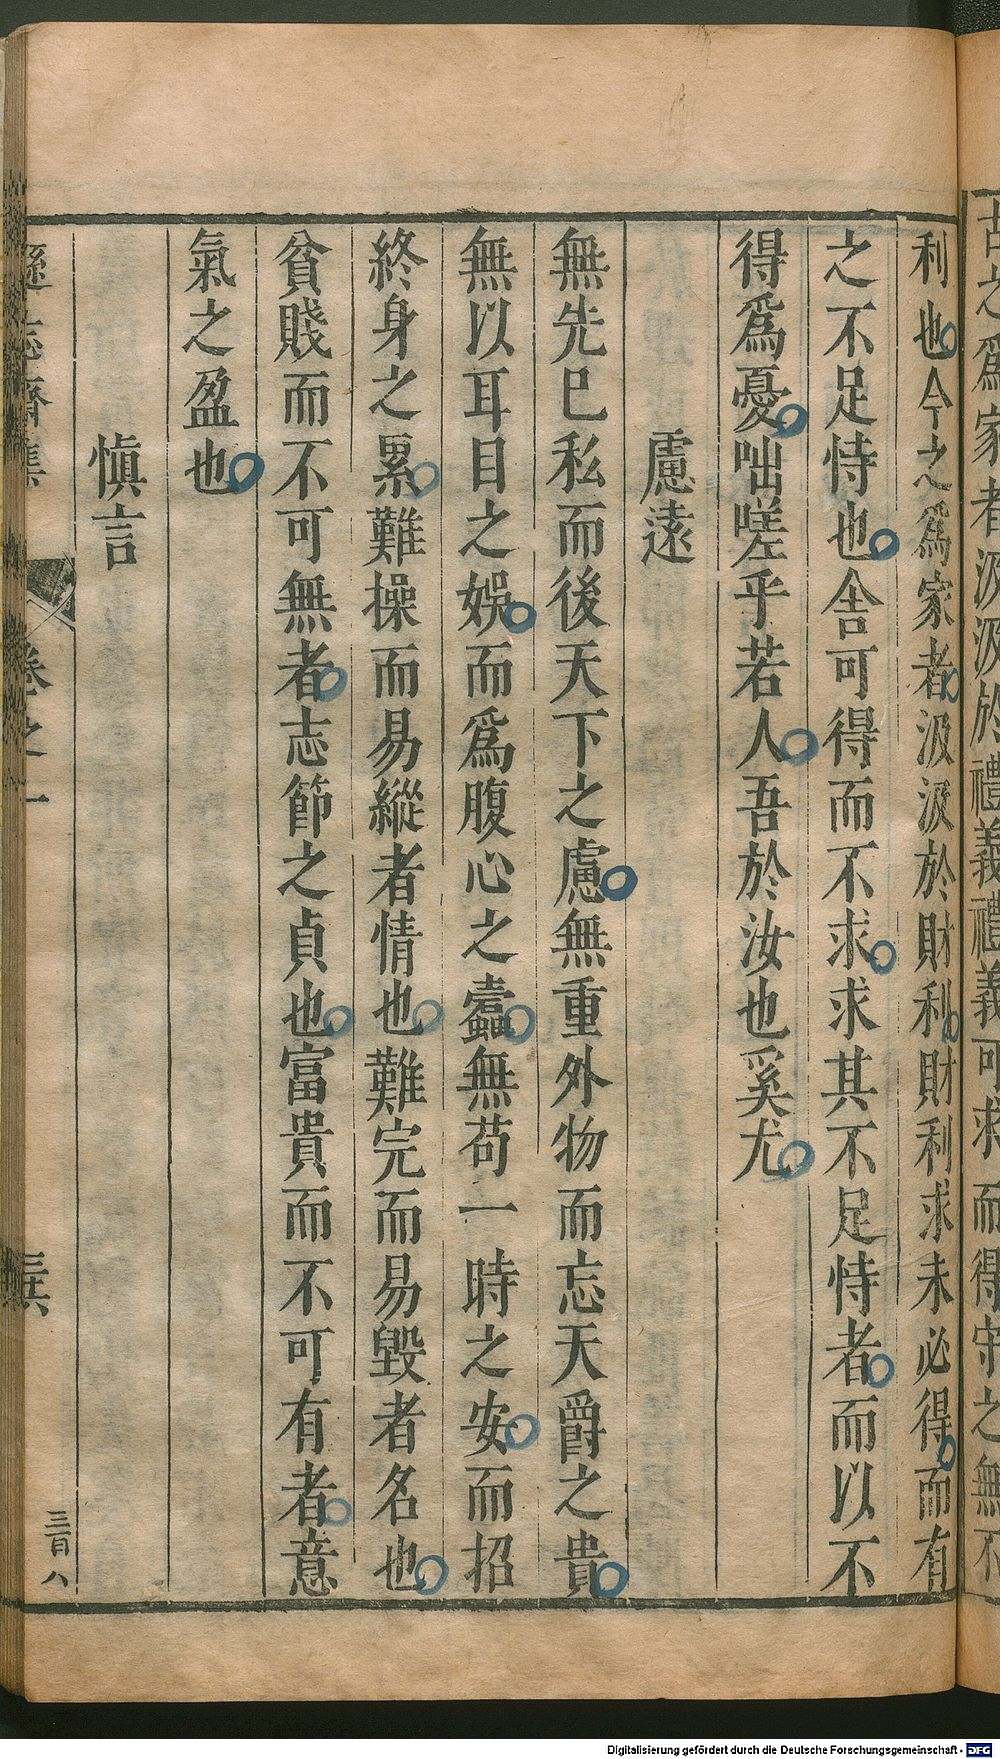 古之爲家者汲汲於禮義禮義可求而得守之無不
利也今之爲家者汲汲於財利財利求未必得而有
之不足恃也舍可得而不求求其不足恃者而以不
得爲憂咄嗟乎若人吾於汝也奚尤
慮遠
無先巳私而後天下之慮無重外物而忘天爵之貴
無以耳目之娛而爲腹心之蠹無苟一時之安而招
終身之累難操而易縱者情也難完而易毀者名也
貧賤而不可無者志節之貞也富貴而不可有者意
氣之盈也
慎言
遜志齋集
卷之一
三百八
Digitalisierung gefördert durch die Deutsche Forschungsgemeinschaft - DFG